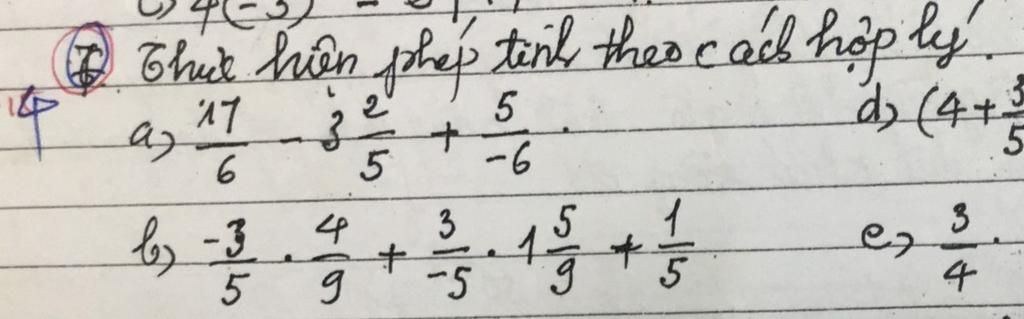 c) 4(-3)
I Thực hiện phép tính theo cách hợp lý.
4
a) 17/6 - 3 2/5 + 5/-6 . d) (4 + 3/5
b) -3/5 . 4/9 + 3/-5 . 1 5/9 + 1/5 e) 3/4 .